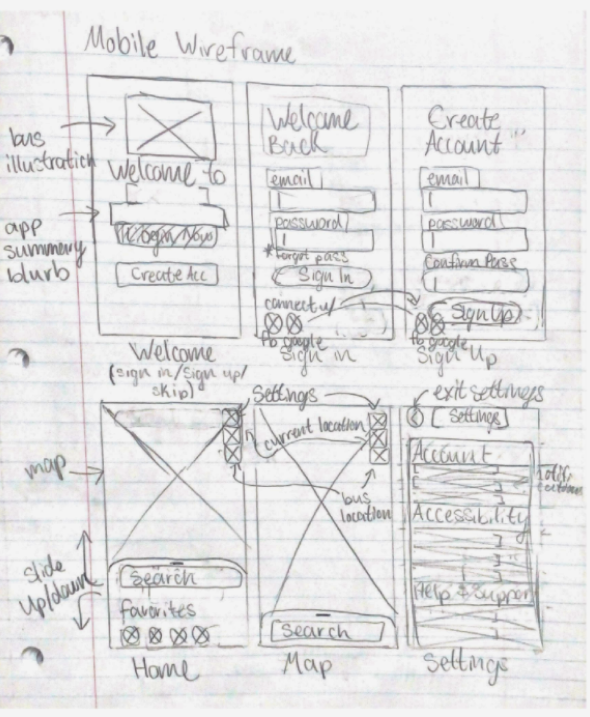 Mobile Wireframe
bus
illustration
Welcome to
app
summary
blurb
Login Now
Create Acc
Welcome
(sign in/sign up/
skip)
Welcome
Back
email
password
*forgot pass
Sign In
connect w/
fb google
Sign in
Create
Account
email
password
Confirm Pass
Sign Up
fb google
Sign Up
map
slide
up/down
Settings
current location
bus
location
search
favorites
Home
search
Map
exit settings
Settings
Account
Accessibility
Help & Support
Settings